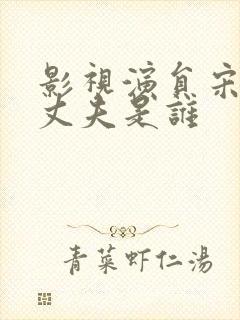 影視演員宋
丈夫是誰
青菜虾仁湯